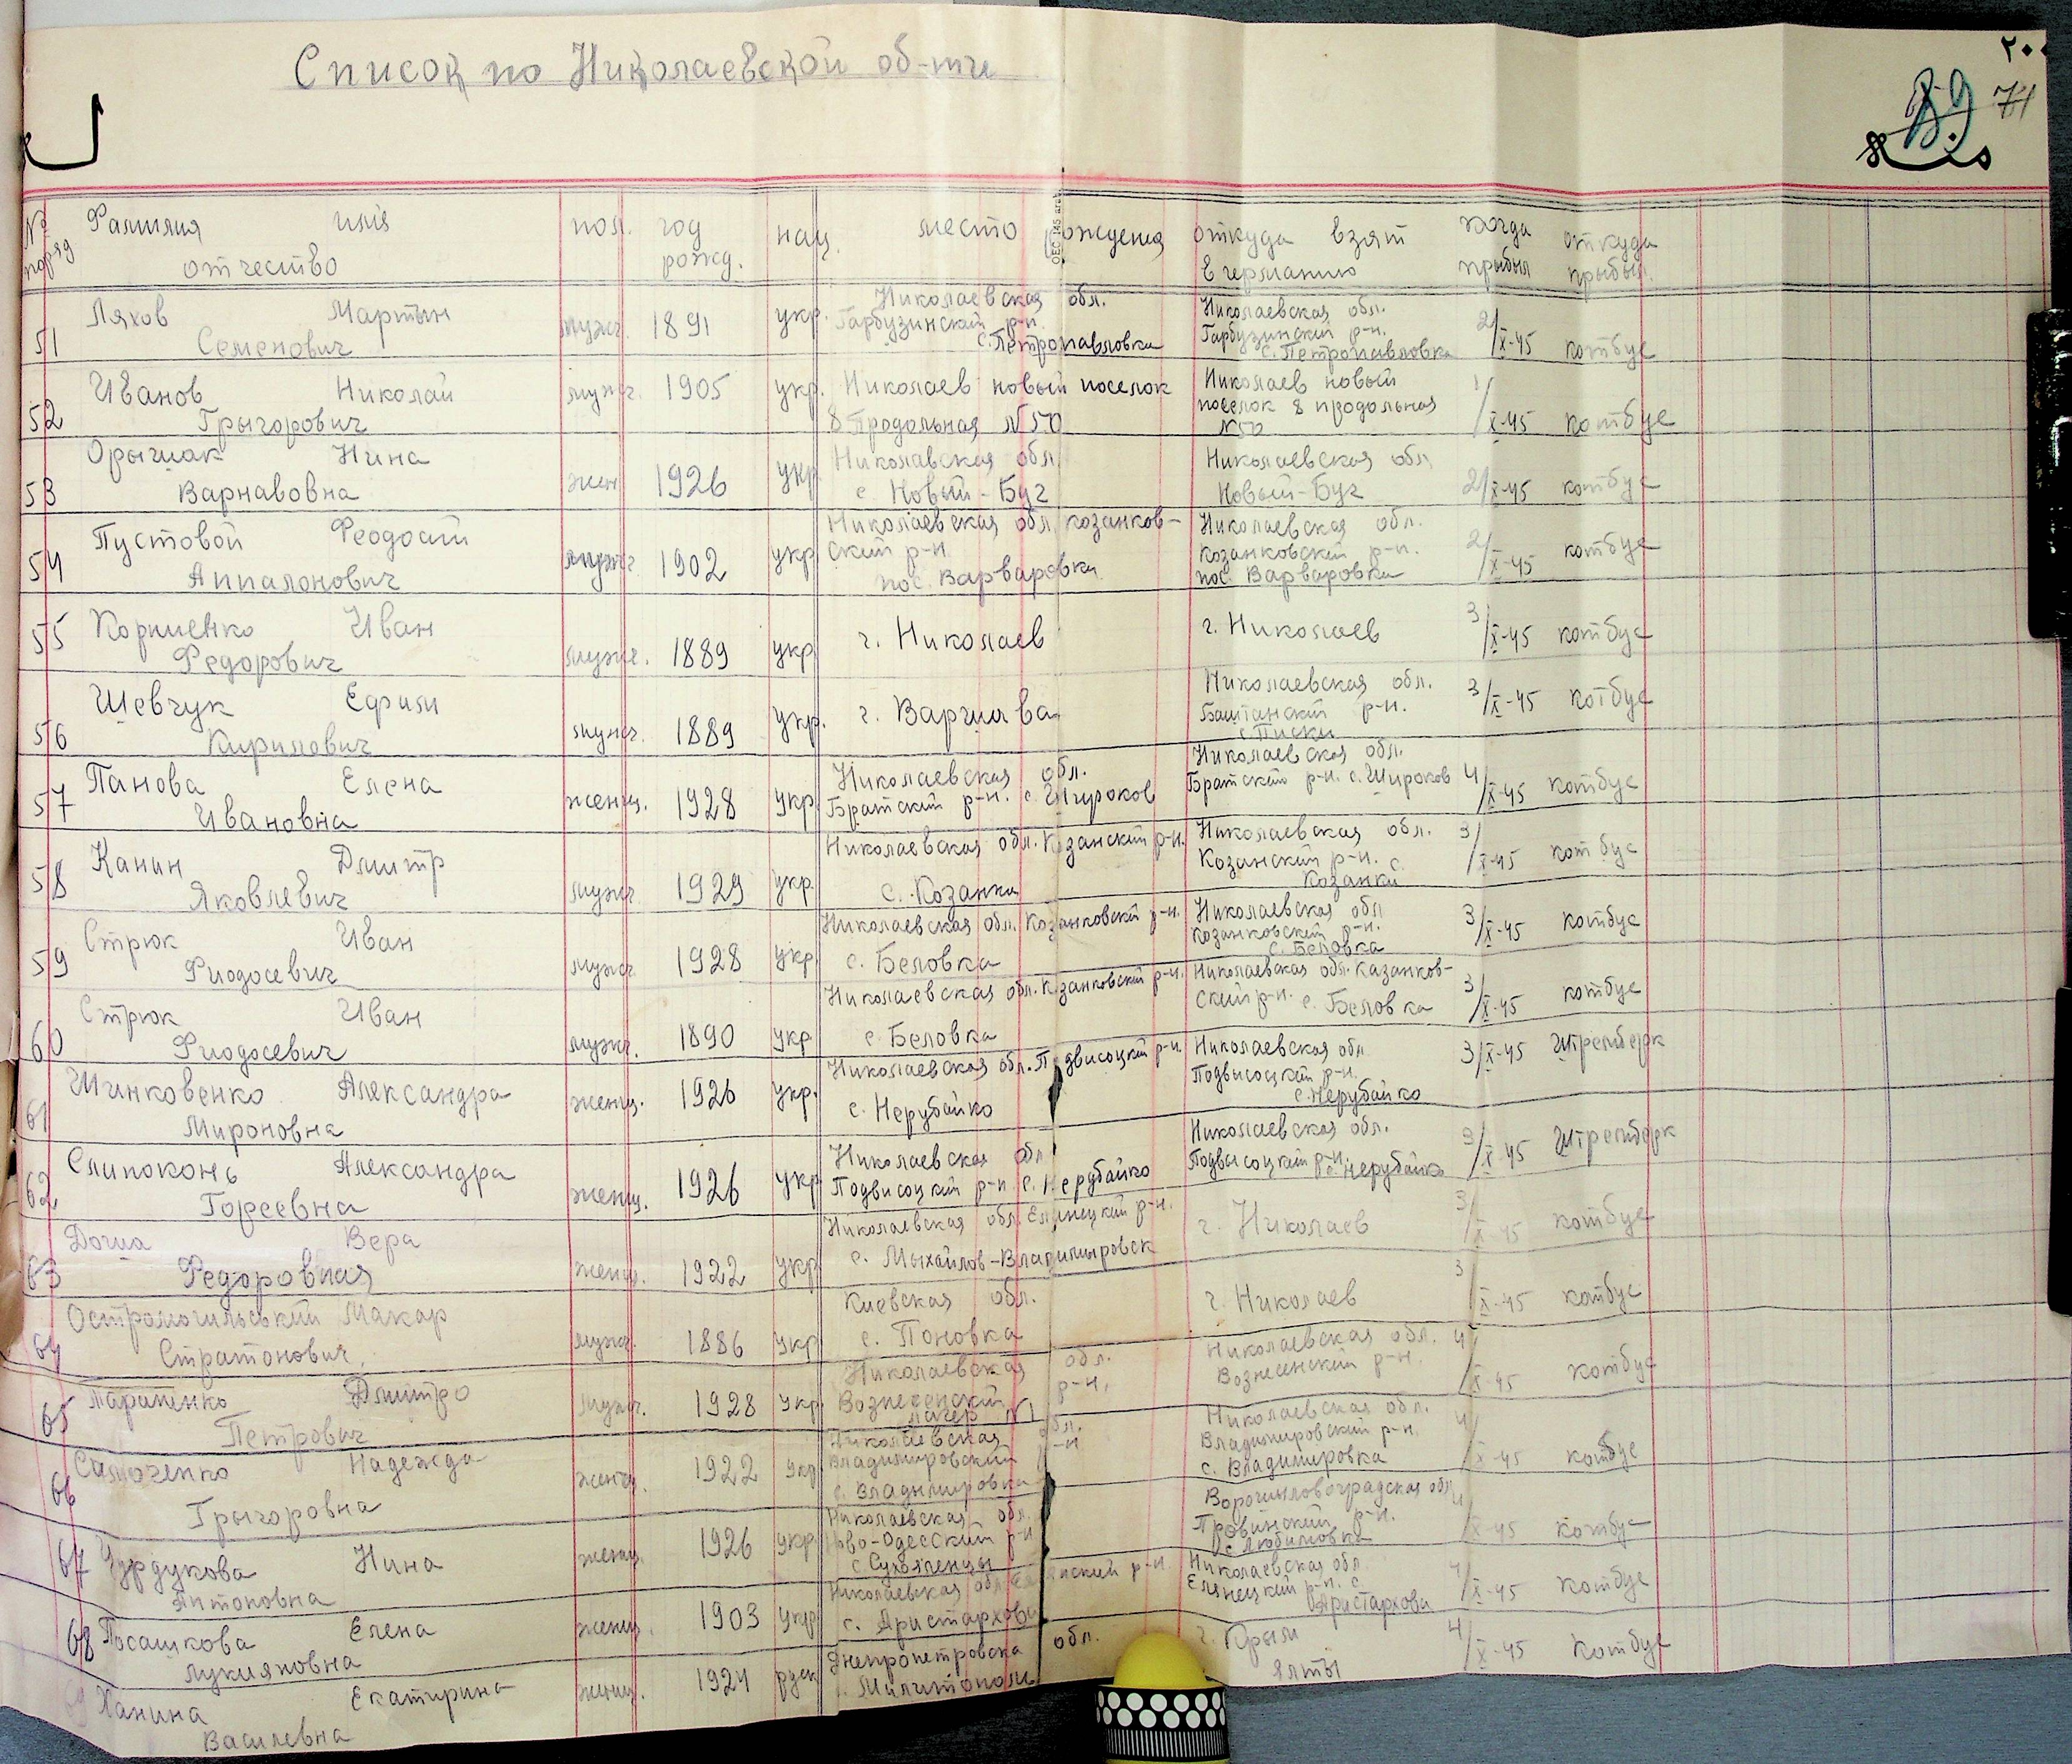 Список по Николаевской об-ти
71
№ поряд Фамилия имя отчество пол. год рожд. нац. место рождения откуда взят в германию когда прибыл откуда прибыл.
51 Ляхов Мартын Семенович мужч. 1891 укр. Николаевская обл. Гарбузинский р-н. с. Петропавловка Николаевская обл. Гарбузинский р-н. с. Петропавловка 2/X-45 котбус
52 Иванов Николай Грыгорович мужч. 1905 укр. Николаев новый поселок 8 Продольная №50 Николаев новый поселок 8 продольная №50 1/X-45 котбус
53 Орышак Нина Варнавовна жен 1926 укр Николавская обл с Новый-Буг Николаевская обл Новый-Буг 2/X-45 котбус
54 Пустовой Феодосий Аппалонович мужч 1902 укр Николаевская обл козанковский р-н. пос. Варваровка Николаевская обл. козанковский р-н. пос. Варваровка 2/X-45 котбус
55 Корниенко Иван Федорович мужч. 1889 укр г. Николаев г. Николаев 3/X-45 котбус
56 Шевчук Ефим Кирилович мужч. 1889 укр. г. Варшава Николаевская обл. Баштанский р-н. с. Писки 3/X-45 котбус
57 Панова Елена Ивановна женщ. 1928 укр Николаевская обл. Братский р-н. с. Шуроков Николаевская обл. Братский р-н. с. Широков 4/X-45 котбус
58 Канин Дмитр Яковлевич мужч 1929 укр Николаевская обл. Козанский р-н. с. Козанка Николаевская обл. Козанский р-н. с. Козанки 3/X-45 котбус
59 Стрюк Иван Фиодосевич мужч 1928 укр Николаевская обл. Козанковский р-н. с. Беловка Николаевская обл козанковский р-н. с. Беловка 3/X-45 котбус
60 Стрюк Иван Фиодосевич мужч. 1890 укр Николаевская обл. Козанковский р-н. с Беловка Николаевская обл. казанковский р-н. с. Беловка 3/X-45 котбус
61 Шинковенко Александра Мироновна женщ. 1926 укр. Николаевская обл. Подвисоцкий р-н. с. Нерубайко Николаевская обл Подвисоцкий р-н. с. Нерубайко 3/X-45 Штремберк
62 Слипоконь Александра Гореевна женщ. 1926 укр Николаевская обл Подвисоцкий р-н с. Нерубайко Николаевская обл. Подвысоцкий р-н. с. Нерубайко 3/X-45 Штремберк
63 Доша Вера Федоровная женщ. 1922 укр Николаевская обл. Еланецкий р-н. с. Мыхайлов-Владимыровск г. Николаев 3/X-45 котбус
64 Остромогильський Макар Стратонович. мужч. 1886 укр Киевская обл. с. Поновка г. Николаев 3/X-45 котбус
65 Параненко Дмитро Петрович мужч. 1928 укр Николаевская обл. Вознесенский р-н. лагер №1 Николаевская обл. Вознесенский р-н. 4/X-45 котбус
66 Самоченко Надежда Грыгоровна женщ. 1922 укр Николаевская обл. Владимировский р-н с. Владимировка Николаевская обл. Владимировский р-н с. Владимеровка 4/X-45 котбус
67 Чурдукова Нина Антоновна женщ. 1926 укр Николаевская обл. Ново-Одесский р-н с Сухоеленцы Ворошиловоградская обл Тровинский р-н. с Любимовка 4/X-45 котбус
68 Посашкова Елена Лукияновна женщ. 1903 укр Николаевская обл Еланский р-н. с. Аристархови Николаевская обл Еланецкий р-н. с Аристархови 4/X-45 котбус
69 Ханина Екатирина Василевна женщ. 1924 руск Днепропетровска обл. Милитополь г. Крым Ялты 4/X-45 Котбус